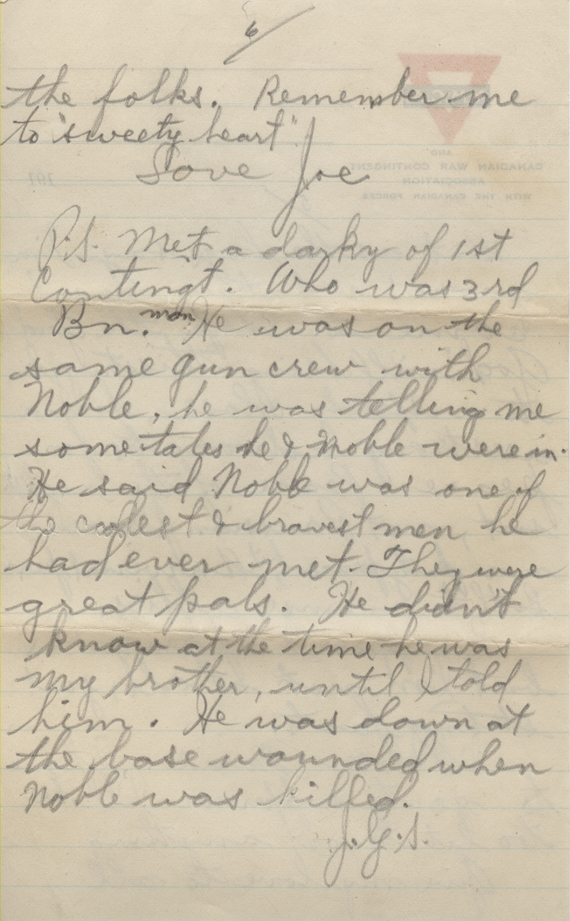 6/
the folks. Remember me
to "sweety heart"
Love Joe
P.S. Met a darky of 1st
Contingt. Who was 3rd
Bn. man He was on the
same gun crew with
Noble, he was telling me
some tales he & Noble were in.
He said Noble was one of
the coolest & bravest men he
had ever met. They were
great pals. He didn't
know at the time he was
my brother, until I told
him. He was down at
the base wounded when
Noble was killed.
J.G.S.
AND
CANADIAN WAR CONTINGENT
ASSOCIATION
WITH THE CANADIAN FORCES
191